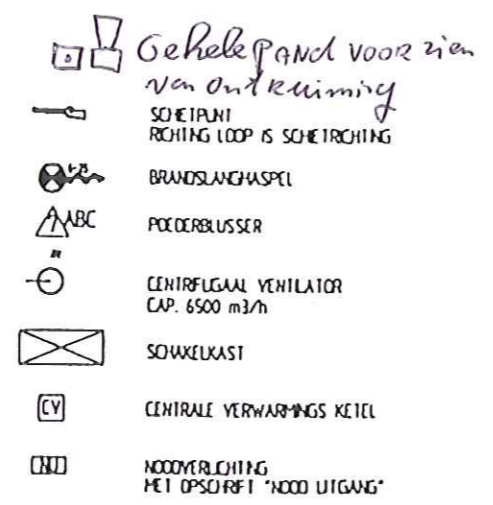 Gehele pand voorzien
van ontruiming
SCHIETPUNT
RICHTING LOOP IS SCHIETRICHTING
BRANDSLANGHASPEL
ABC POEDERBLUSSER
CENTRIFUGAAL VENTILATOR
CAP. 6500 m3/h
SCHAKELKAST
CV CENTRALE VERWARMINGS KETEL
NU NOODVERLICHTING
MET OPSCHRIFT "NOOD UITGANG"